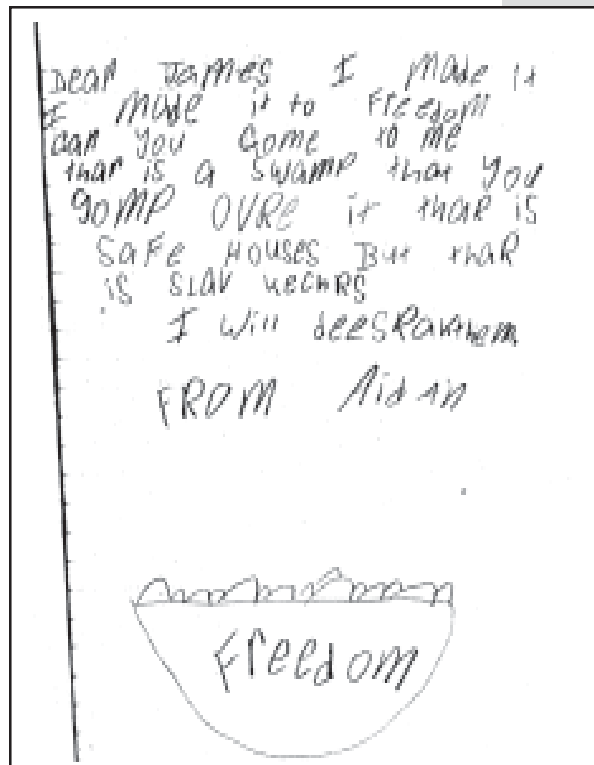 Dear James I made it
I made it to Freedom
can you come to me
thar is a swamp that you
gomp OVRE it thar is
Safe Houses But thar
is slav
I will
FROM Aidan
Freedom